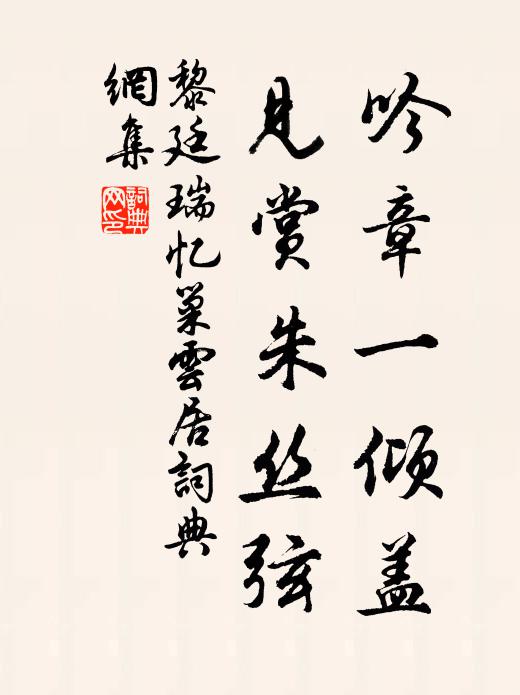 吟章一倾盖
见赏朱丝弦
黎廷瑞忆巢雲居詞典
網集
詞典网印